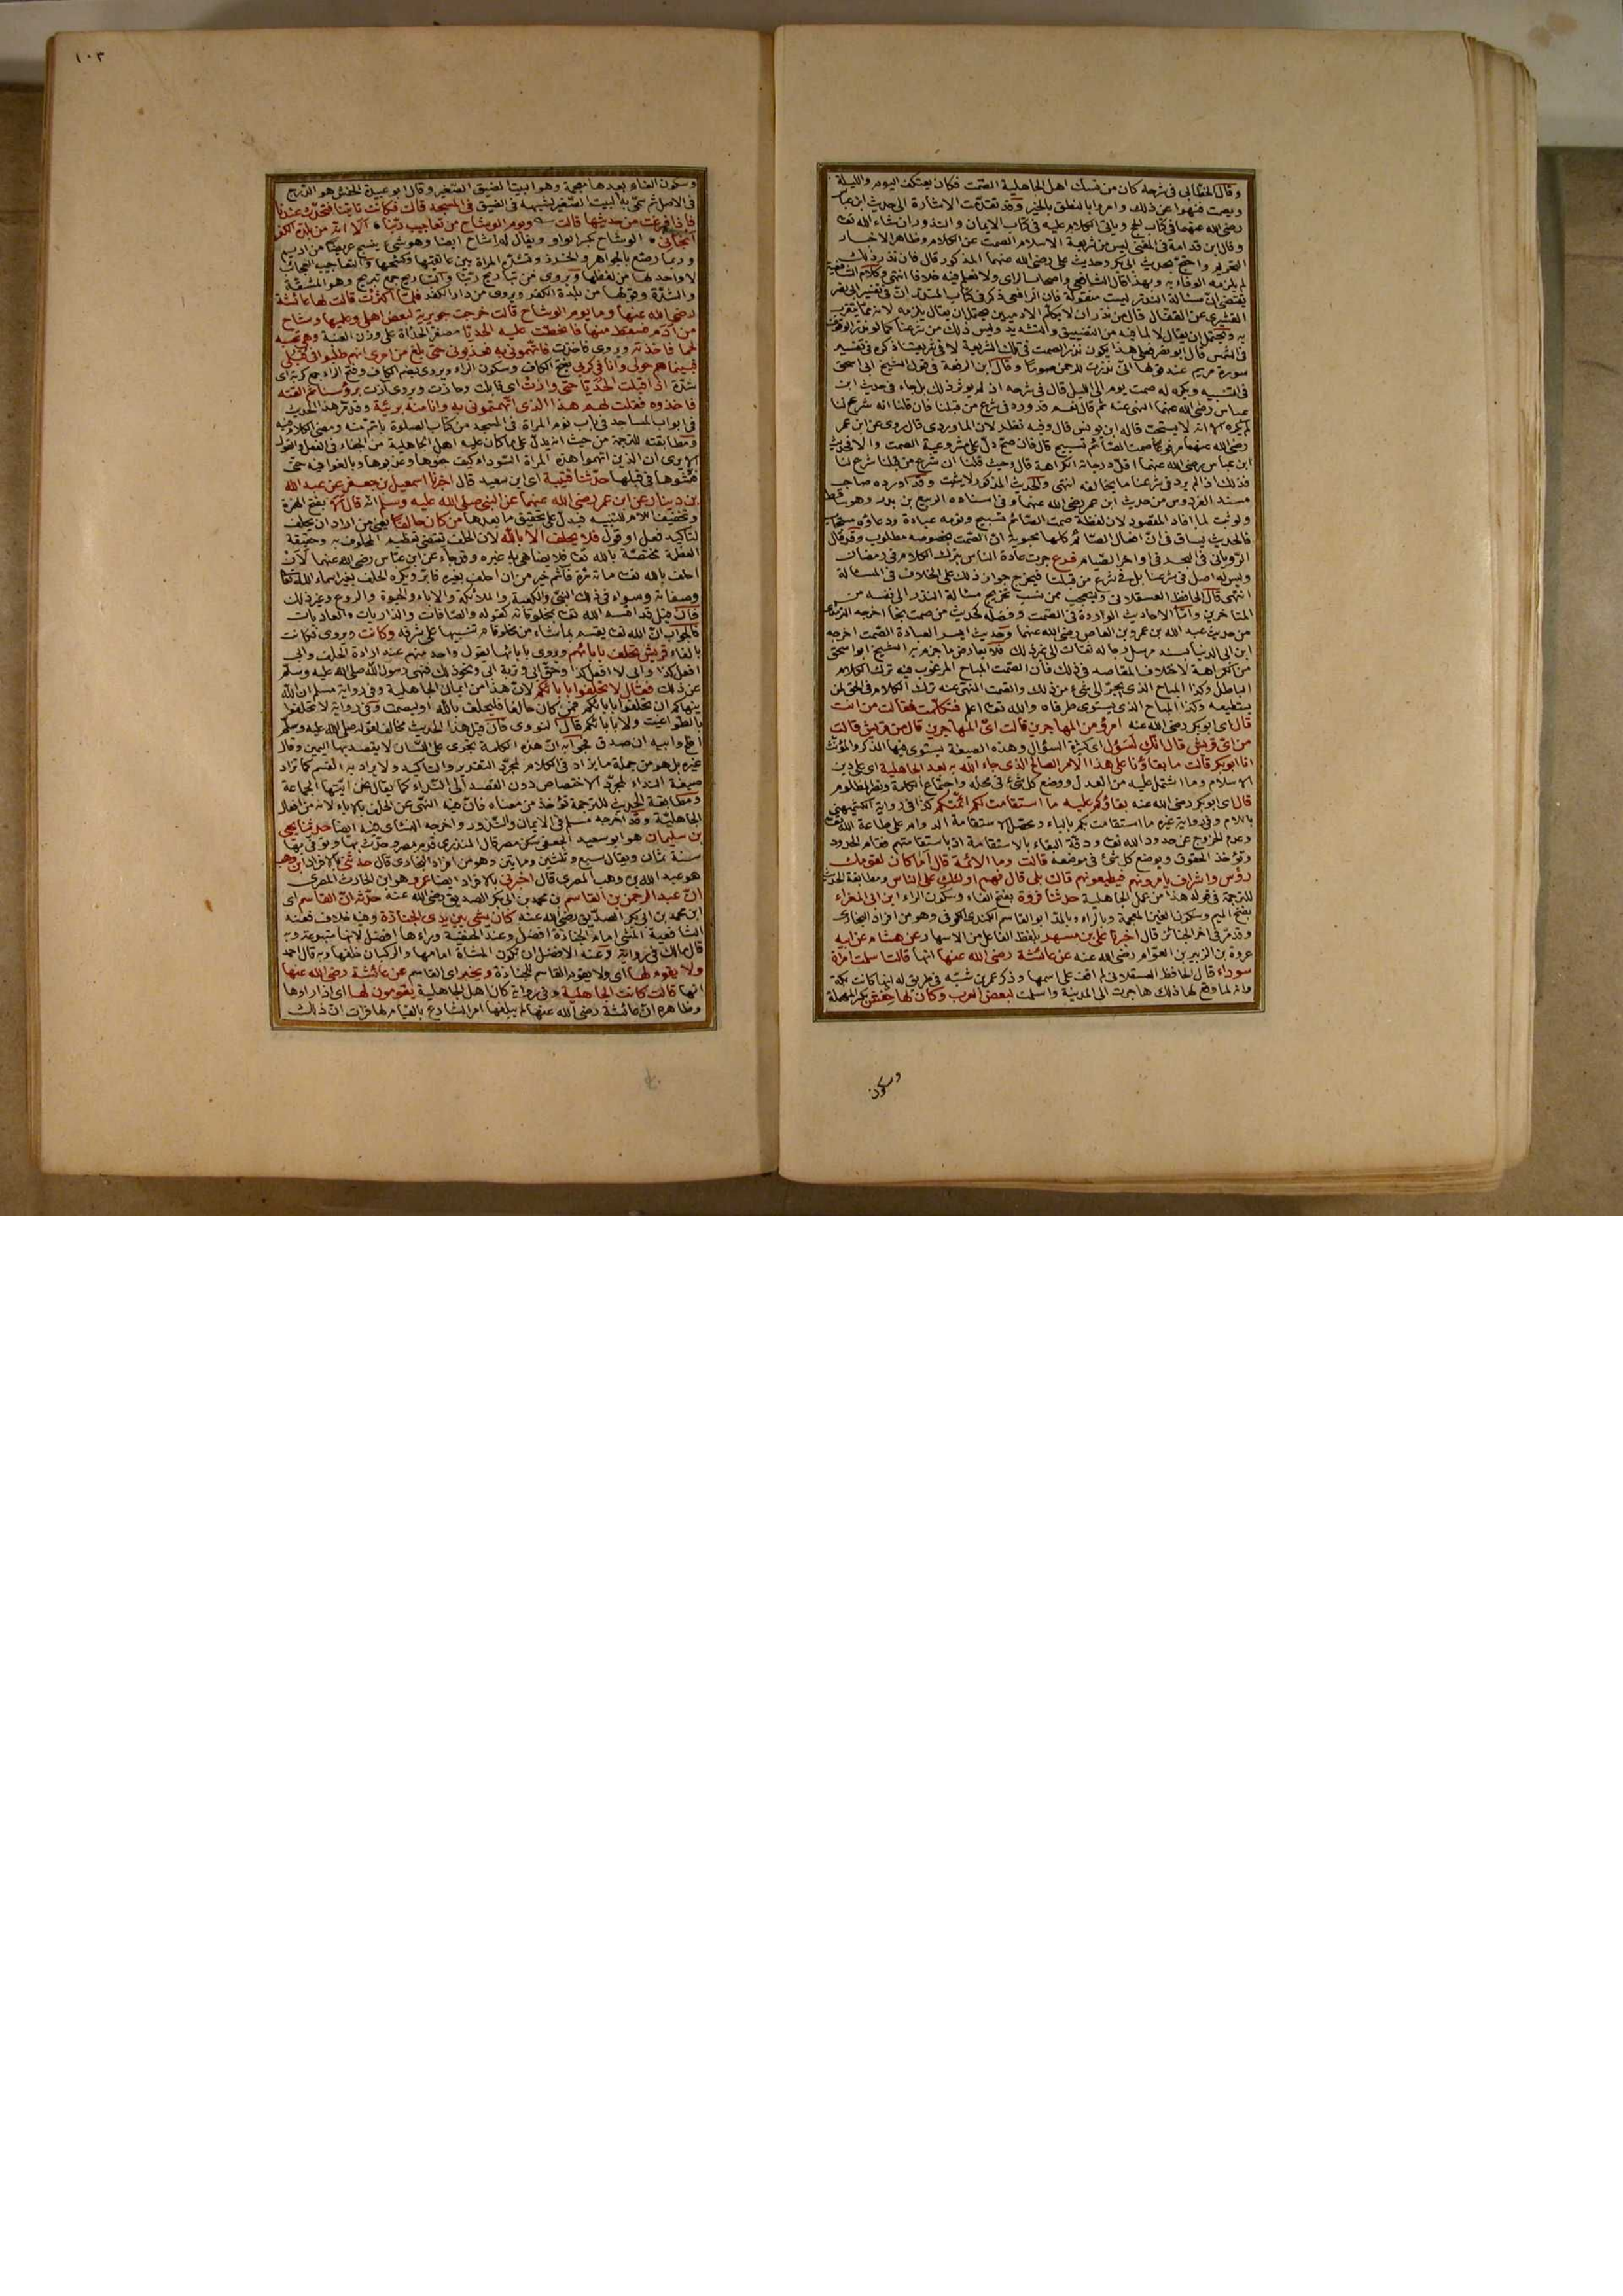 وقال الخطابى فى شرحه كان من نسك اهل الجاهلية الصمت فكان يعتكف اليوم والليلة
ويصمت فنهوا عن ذلك وامروا بالنطق بالخير وقد تقدمت الاشارة الى حديث ابن عباس
رضى الله عنهما فى كتاب الحج وياتى الكلام عليه فى كتاب الايمان والنذور ان شاء الله تعا
وقال ابن قدامة فى المغنى ليس من شريعة الاسلام الصمت عن الكلام وظاهر الاخبار
التحريم واحتج بحديث ابى بكر وحديث على رضى الله عنهما المذكور قال فان نذر ذلك
لم يلزمه الوفاء به وبهذا قال الشافعى واصحاب الراى ولا نعلم فيه خلافا انتهى وكلام الشافعية
يقتضى ان مسئالة النذر ليست منقولة فان الرافعى ذكر فى كتاب النذر ان فى تفسير ابى نصر
القشيرى عن القفال قال من نذر ان لا يكلم الادميين يحتمل ان يقال يلزمه لانه مما يتقرب
به ويحتمل ان يقال لا لما فيه من التضييق والتشديد وليس ذلك من شرعنا كما لو نذر الوقوف
فى الشمس قال ابو نصر فعلى هذا يكون نذر الصمت فى تلك الشريعة لا فى شريعتنا ذكره فى تفسير
سورة مريم عند قولها انى نذرت للرحمن صوما وقال ابن الرفعة فى قول الشيخ ابى اسحق
فى التنبيه ويكره له صمت يوم الى الليل قال فى شرحه اذ لم يوثر ذلك بل جاء فى حديث ابن
عباس رضى الله عنهما النهى عنه ثم قال نعم قد ورد فى شرع من قبلنا فان قلنا انه شرع لنا
لم يكره الا انه لا يستحب قاله ابن يونس قال وفيه نظر لان الماوردى قال روى عن ابن عمر
رضى الله عنهما مرفوعا صمت الصائم تسبيح قال فان صح دل على مشروعية الصمت والا فحديث
ابن عباس رضى الله عنهما اقل درجاته الكراهة قال وحيث قلنا ان شرع من قبلنا شرع لنا
فذلك اذا لم يرد فى شرعنا ما يخالفه انتهى والحديث المذكور لا يثبت وقد اورده صاحب
مسند الفردوس من حديث ابن عمر رضى الله عنهما وفى اسناده الربيع بن بدر وهو ساقط
ولو ثبت لما افاد المقصود لان لفظه صمت الصائم تسبيح ونومه عبادة ودعاؤه مستجاب
فالحديث يساق فى ان افعال الصائم كلها محبوبة لا ان الصمت بخصوصه مطلوب وقد قال
الرويانى فى البحر فى اواخر الصيام فرع جرت عادة الناس بترك الكلام فى رمضان
وليس له اصل فى شرعنا بل فى شرع من قبلنا فيخرج جواز ذلك على الخلاف فى المسئالة
انتهى قال الحافظ العسقلانى وليتعجب ممن نسب تخريج مسئالة النذر الى نفسه من
المتاخرين واما الاحاديث الواردة فى الصمت وفضله كحديث من صمت نجا اخرجه الترمذى
من حديث عبد الله بن عمرو بن العاص رضى الله عنهما وحديث ايسر العبادة الصمت اخرجه
ابن ابى الدنيا بسند مرسل رجاله ثقات الى غير ذلك فلا يعارض ما جزم به الشيخ ابو اسحق
من الكراهة لاختلاف المقاصد فى ذلك فان الصمت المباح المرغوب فيه ترك الكلام
الباطل وكذا المباح الذى يجر الى شىء من ذلك والصمت المنهى عنه ترك الكلام فى الحق لمن
يستطيعه وكذا المباح الذى يستوى طرفاه والله تعا اعلم فتكلمت فقالت من انت
قال اى ابو بكر رضى الله عنه امرؤ من المهاجرين قالت اى المهاجرين قال من قريش قالت
من اى قريش قال انك لسؤل اى كثيرة السؤال وهذه الصيغة يستوى فيها المذكر والمؤنث
انا ابو بكر قالت ما بقاؤنا على هذا الامر الصالح الذى جاء الله به بعد الجاهلية اى على دين
الاسلام وما اشتمل عليه من العدل ووضع كل شىء فى محله واجتماع الكلمة ونصر المظلوم
قال اى ابو بكر رضى الله عنه بقاؤكم عليه ما استقامت لكم ائمتكم كذا فى رواية الكشميهنى
باللام وفى رواية غيره ما استقامت بكم بالباء ومحصل الاستقامة الدوام على طاعة الله تعا
وعدم الخروج عن حدود الله تعا ودقة البقاء بالاستقامة اذ باستقامتهم تقام الحدود
وتؤخذ الحقوق ويوضع كل شىء فى موضعه قالت وما الائمة قال اما كان لقومك
رؤس واشراف يامرونهم فيطيعونهم قالت بلى قال فهم اولئك على الناس ومطابقة الحديث
للترجمة فى قوله هذا من عمل الجاهلية حدثنا فروة بفتح الفاء وسكون الراء ابن ابى المغراء
بفتح الميم وسكون الغين المعجمة وبالراء وبالمد ابو القاسم الكندى الكوفى وهو من افراد البخارى
وقد مر فى اخر الجنائز قال اخبرنا على بن مسهر بلفظ الفاعل من الاسهار عن هشام عن ابيه
عروة بن الزبير بن العوام رضى الله عنه عن عائشة رضى الله عنها انها قالت اسلمت امراة
سوداء قال الحافظ العسقلانى لم اقف على اسمها وذكر عمر بن شبة فى طريق له انها كانت بمكة
وانه لما وقع لها ذلك هاجرت الى المدينة واسلمت لبعض العرب وكان لها حفش بكسر المهملة
وسكون
١٠٣
وسكون الفاء بعدها معجمة وهو البيت الضيق الصغير وقال ابو عبيدة الحفش هو الدرج
فى الاصل ثم سمى به البيت الصغير لشبهه فى الضيق فى المسجد قالت فكانت تاتينا فتحدث عندنا
فاذا فرغت من حديثها قالت ويوم الوشاح من تعاجيب ربنا الا انه من بلدة الكفر
انجانى الوشاح بكسر الواو ويقال له اشاح ايضا وهو شىء ينسج عريضا من اديم
وربما رصع بالجواهر والخرز وتشده المراة بين عاتقيها وكشحها والتعاجيب العجائب
لا واحد لها من لفظها ويروى من تباريح ربنا والتباريح جمع تبريح وهو المشقة
والشدة وقولها من بلدة الكفر ويروى من دار الكفر فلما اكثرت قالت لها عائشة
رضى الله عنها وما يوم الوشاح قالت خرجت جويرية لبعض اهلى وعليها وشاح
من ادم فسقط منها فانحطت عليه الحديا مصغر الحداة على وزن العنبة وهى تحسبه
لحما فاخذته ويروى فاخذت فاتهمونى به فعذبونى حتى بلغ من امرى انهم طلبوا فى قبلى
فبينا هم حولى وانا فى كربى بفتح الكاف وسكون الراء ويروى بضم الكاف وفتح الراء جمع كربة اى
شدة اذ اقبلت الحديا حتى وازت اى قابلت وحاذت ويروى ازت برؤسنا ثم القته
فاخذوه فقلت لهم هذا الذى اتهمتمونى به وانا منه بريئة وقد مر هذا الحديث
فى ابواب المساجد فى باب نوم المراة فى المسجد من كتاب الصلوة باتم منه ومضى الكلام فيه
ومطابقته للترجمة من حيث انه يدل على ما كان عليه اهل الجاهلية من الجفاء فى الفعل والقول
الا يرى ان الذين اتهموا هذه المراة السوداء كيف جفوها وعذبوها وبالغوا فيه حتى
فتشوها فى قبلها حدثنا قتيبة اى ابن سعيد قال اخبرنا اسمعيل بن جعفر عن عبد الله
بن دينار عن ابن عمر رضى الله عنهما عن النبى صلى الله عليه وسلم انه قال الا بفتح الهمزة
وتخفيف اللام للتنبيه فيدل على تحقيق ما بعدها من كان حالفا يعنى من اراد ان يحلف
لتاكيد فعل او قول فلا يحلف الا بالله لان الحلف يقتضى تعظيم المحلوف به وحقيقة
العظمة مختصة بالله تعا فلا يضاهى به غيره وقد جاء عن ابن عباس رضى الله عنهما لان
احلف بالله تعا مائة مرة فاثم خير من ان احلف بغيره فابر ويكره الحلف بغير اسماء الله تعا
وصفاته وسواء فى ذلك النبى والكعبة والملائكة والاباء والحيوة والروح وغير ذلك
فان قيل قد اقسم الله تعا بمخلوقاته كقوله والصافات والذاريات والعاديات
فالجواب ان الله تعا يقسم بما شاء من مخلوقاته تنبيها على شرفه وكانت ويروى فكانت
بالفاء قريش تحلف بابائهم ويروى بابائها يقول واحد منهم عند ارادة الحلف وابى
افعل كذا وابى لا افعل كذا وحق ابى وتربة ابى ونحو ذلك فنهى رسول الله صلى الله عليه وسلم
عن ذلك فقال لا تحلفوا بابائكم لان هذا من ايمان الجاهلية وفى رواية مسلم ان الله
ينهاكم ان تحلفوا بابائكم فمن كان حالفا فليحلف بالله او ليصمت وفى رواية لا تحلفوا
بالطواغيت ولا بابائكم قال النووى فان قيل هذا الحديث مخالف لقوله صلى الله عليه وسلم
افلح وابيه ان صدق فجوابه ان هذه الكلمة تجرى على اللسان لا يقصد بها اليمين وقال
غيره بل هو من جملة ما يزاد فى الكلام لمجرد التقدير والتاكيد ولا يراد به القسم كما تزاد
صيغة النداء لمجرد الاختصاص دون القصد الى النداء كما يقال نحن ايتها الجماعة
ومطابقة الحديث للترجمة تؤخذ من معناه فان فيه النهى عن الحلف بالاباء لانه من افعال
الجاهلية وقد اخرجه مسلم فى الايمان والنذور واخرجه النسائى فيه ايضا حدثنا يحيى
بن سليمان هو ابو سعيد الجعفى سكن مصر قال المنذرى قدم مصر وحدث بها وتوفى بها
سنة ثمان ويقال سبع وثلثين ومايتين وهو من افراد البخارى قال حدثنى بالافراد ابن وهب
هو عبد الله بن وهب المصرى قال اخبرنى بالافراد ايضا عمرو هو ابن الحارث المصرى
ان عبد الرحمن بن القاسم بن محمد بن ابى بكر الصديق رضى الله عنه حدثه ان القاسم اى
ابن محمد بن ابى بكر الصديق رضى الله عنه كان يمشى بين يدى الجنازة وفيه خلاف فعند
الشافعية المشى امام الجنازة افضل وعند الحنفية وراءها افضل لانها متبوعة وبه
قال مالك فى رواية وعنه الافضل ان يكون المشاة امامها والركبان خلفها وبه قال احمد
ولا يقوم لها اى ولا يقوم القاسم للجنازة ويخبر اى القاسم عن عائشة رضى الله عنها
انها قالت كانت الجاهلية وفى رواية كان اهل الجاهلية يقومون لها اى اذا راوها
وظاهره ان عائشة رضى الله عنها لم يبلغها امر الشارع بالقيام لها فرات ان ذلك